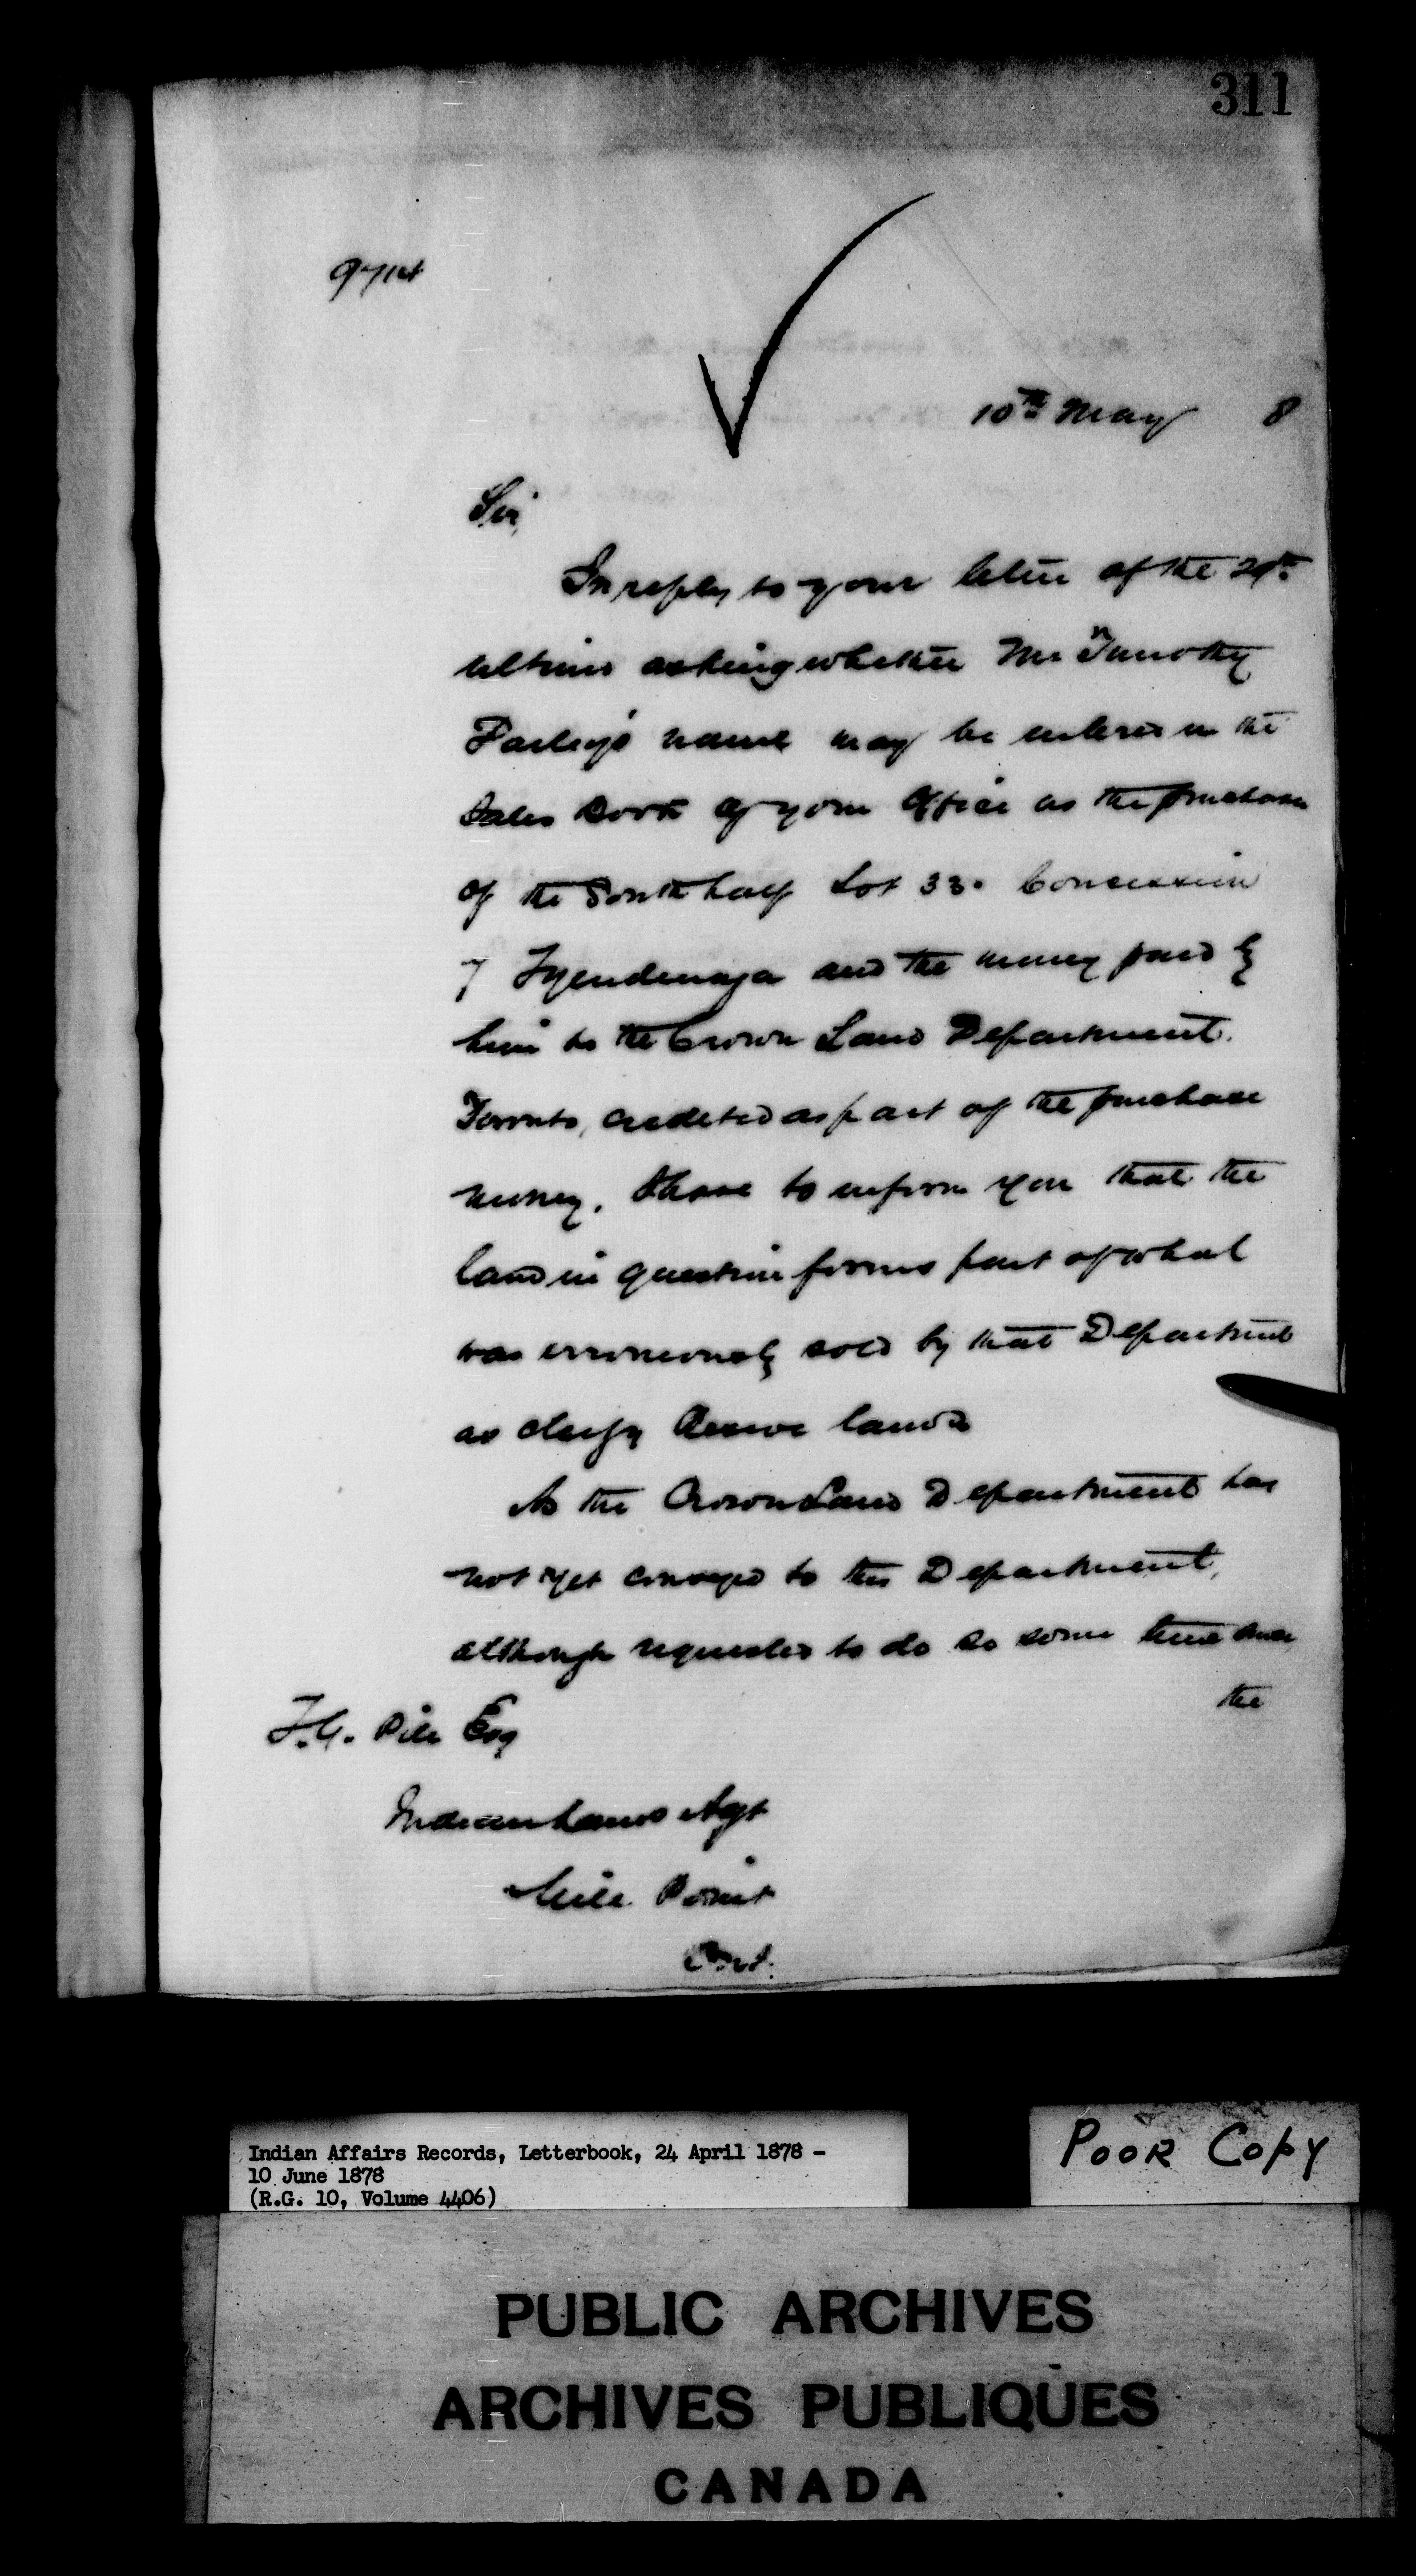 311
10th May 8
Sir,
In reply to your letter of the 29th
ultimo asking whether Mr Timothy
Farley's name may be entered in the
Sales Book of your Office as the purchaser
of the South half Lot 33. Concession
7 Tyendenaga and the money paid by
him to the Crown Land Department.
Toronto, credited as part of the purchase
money, I have to inform you that the
land in question forms part of what
was erroneously sold by that Department
as Clergy Reserve lands
As the Crown Land Department has
not yet conveyed to this Department,
although requested to do so some time since
the
Esq
Indian Lands Agt
Point
Ont.
Indian Affairs Records, Letterbook, 24 April 1878 -
10 June 1878
(R.G. 10, Volume 4406)
POOR COPY
PUBLIC ARCHIVES
ARCHIVES PUBLIQUES
CANADA